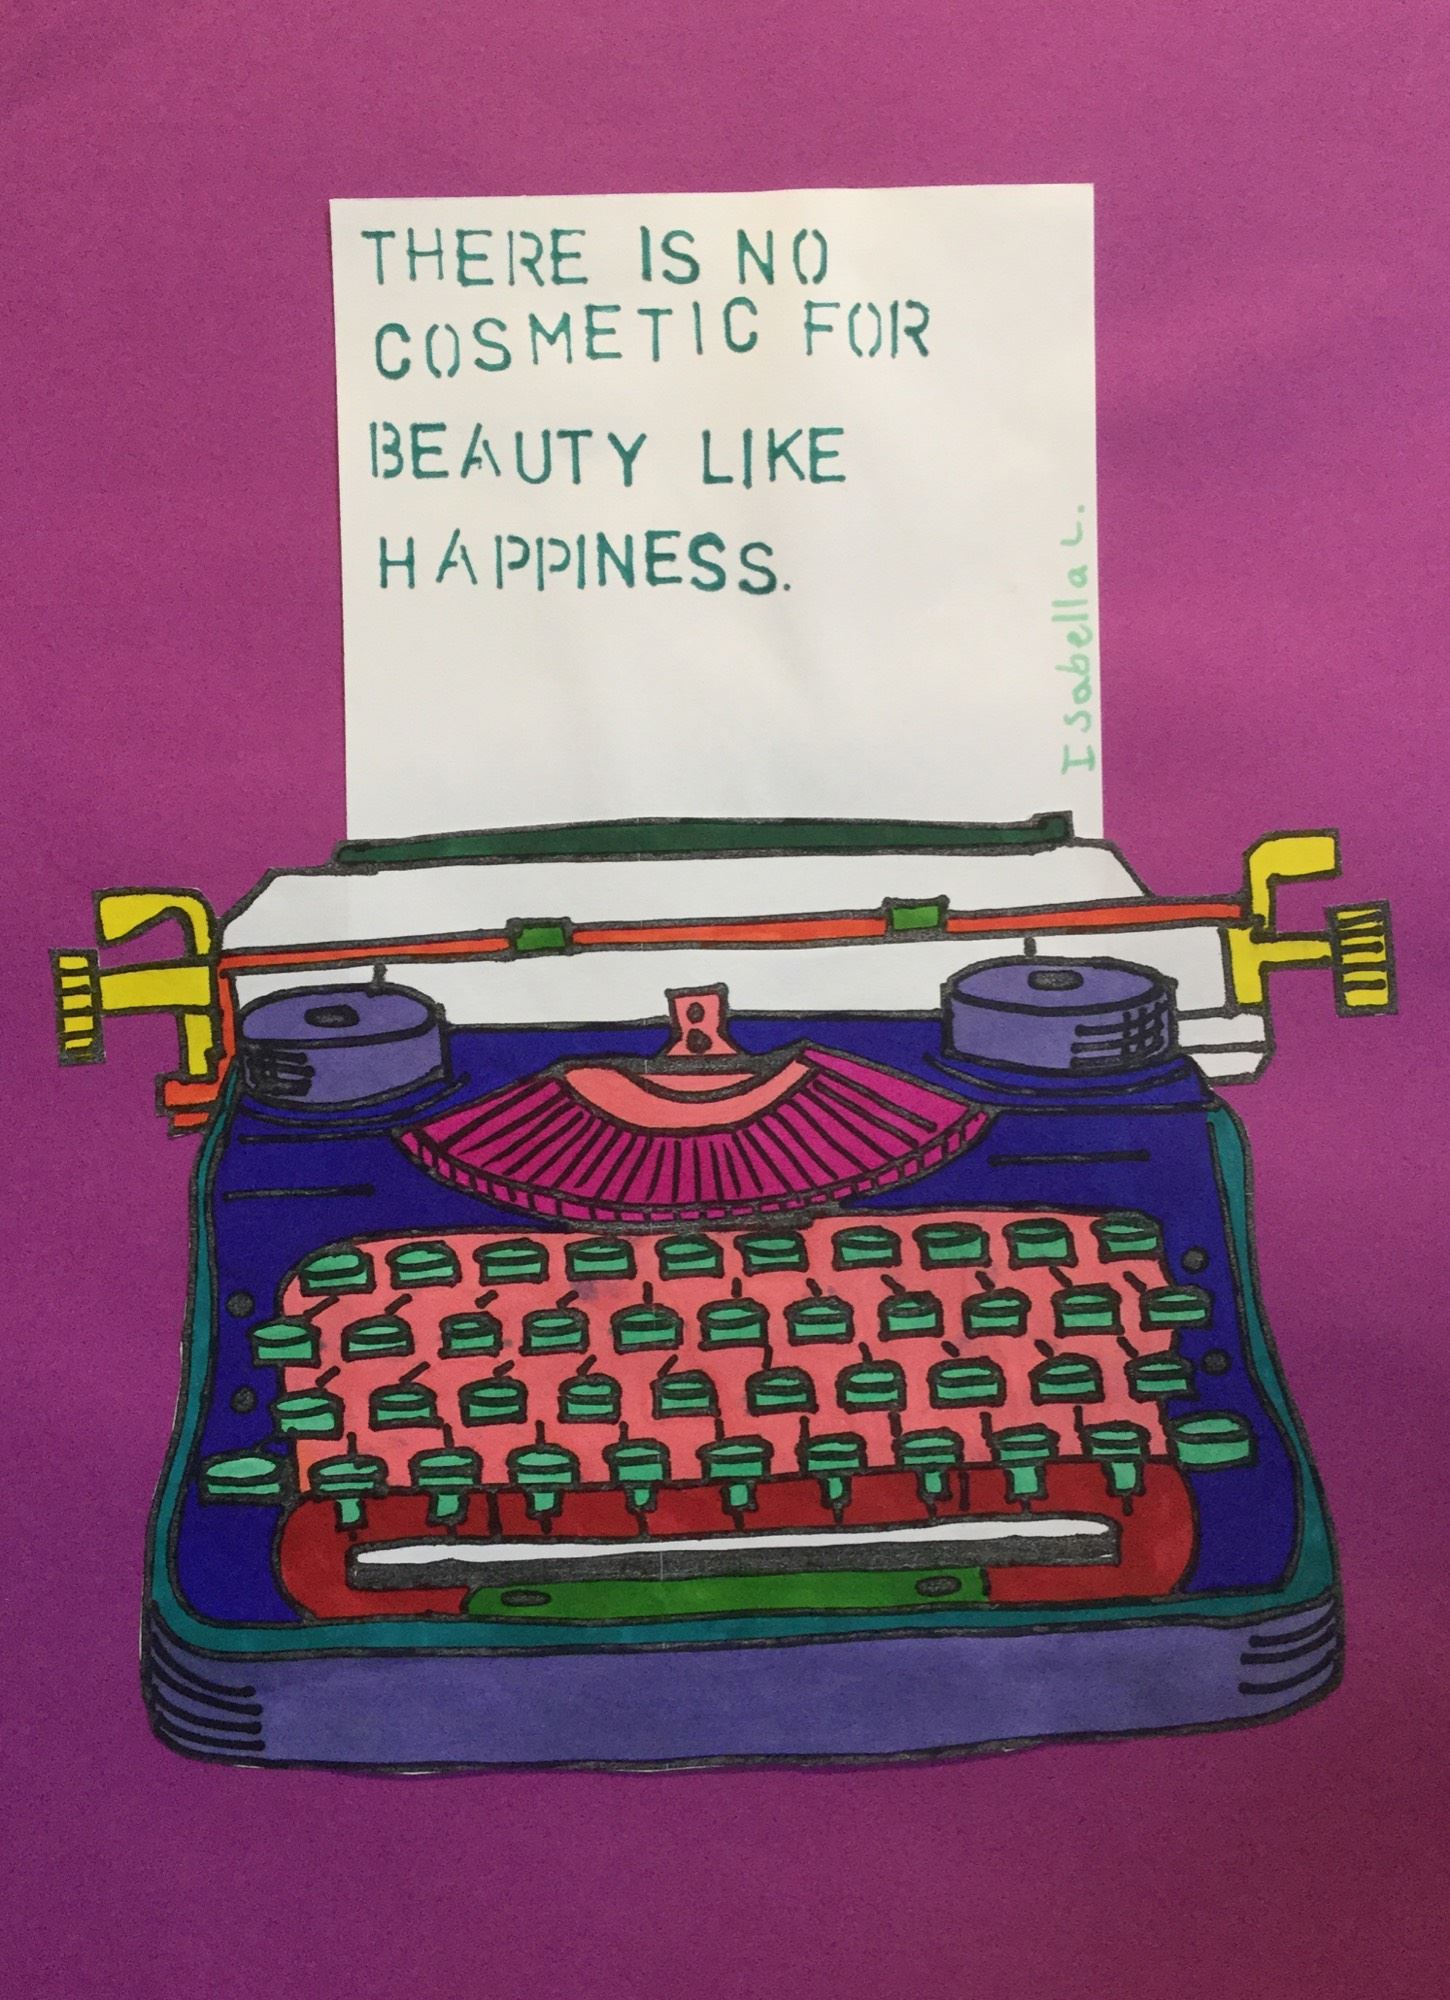 THERE IS NO
COSMETIC FOR
BEAUTY LIKE
HAPPINESS.
Isabella L.